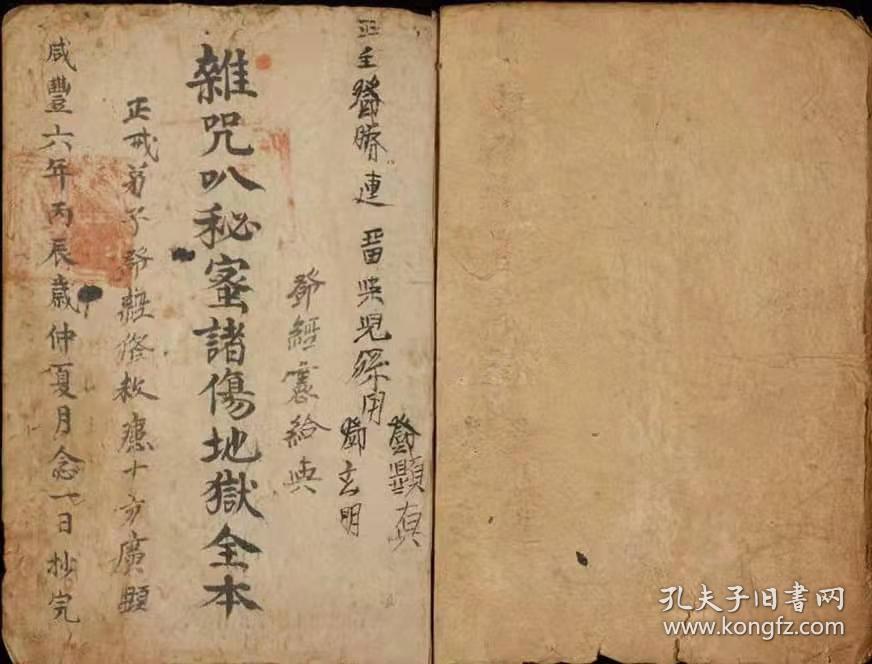 正主鄧勝連 畱與兒孫用
鄧顯真
鄧玄明
鄧經憲給與
雜咒叭秘蜜諸傷地獄全本
正戒弟子鄧經修敕應十方廣顯
咸豐六年丙辰歲仲夏月念一日抄完
孔夫子旧书网
www.kongfz.com